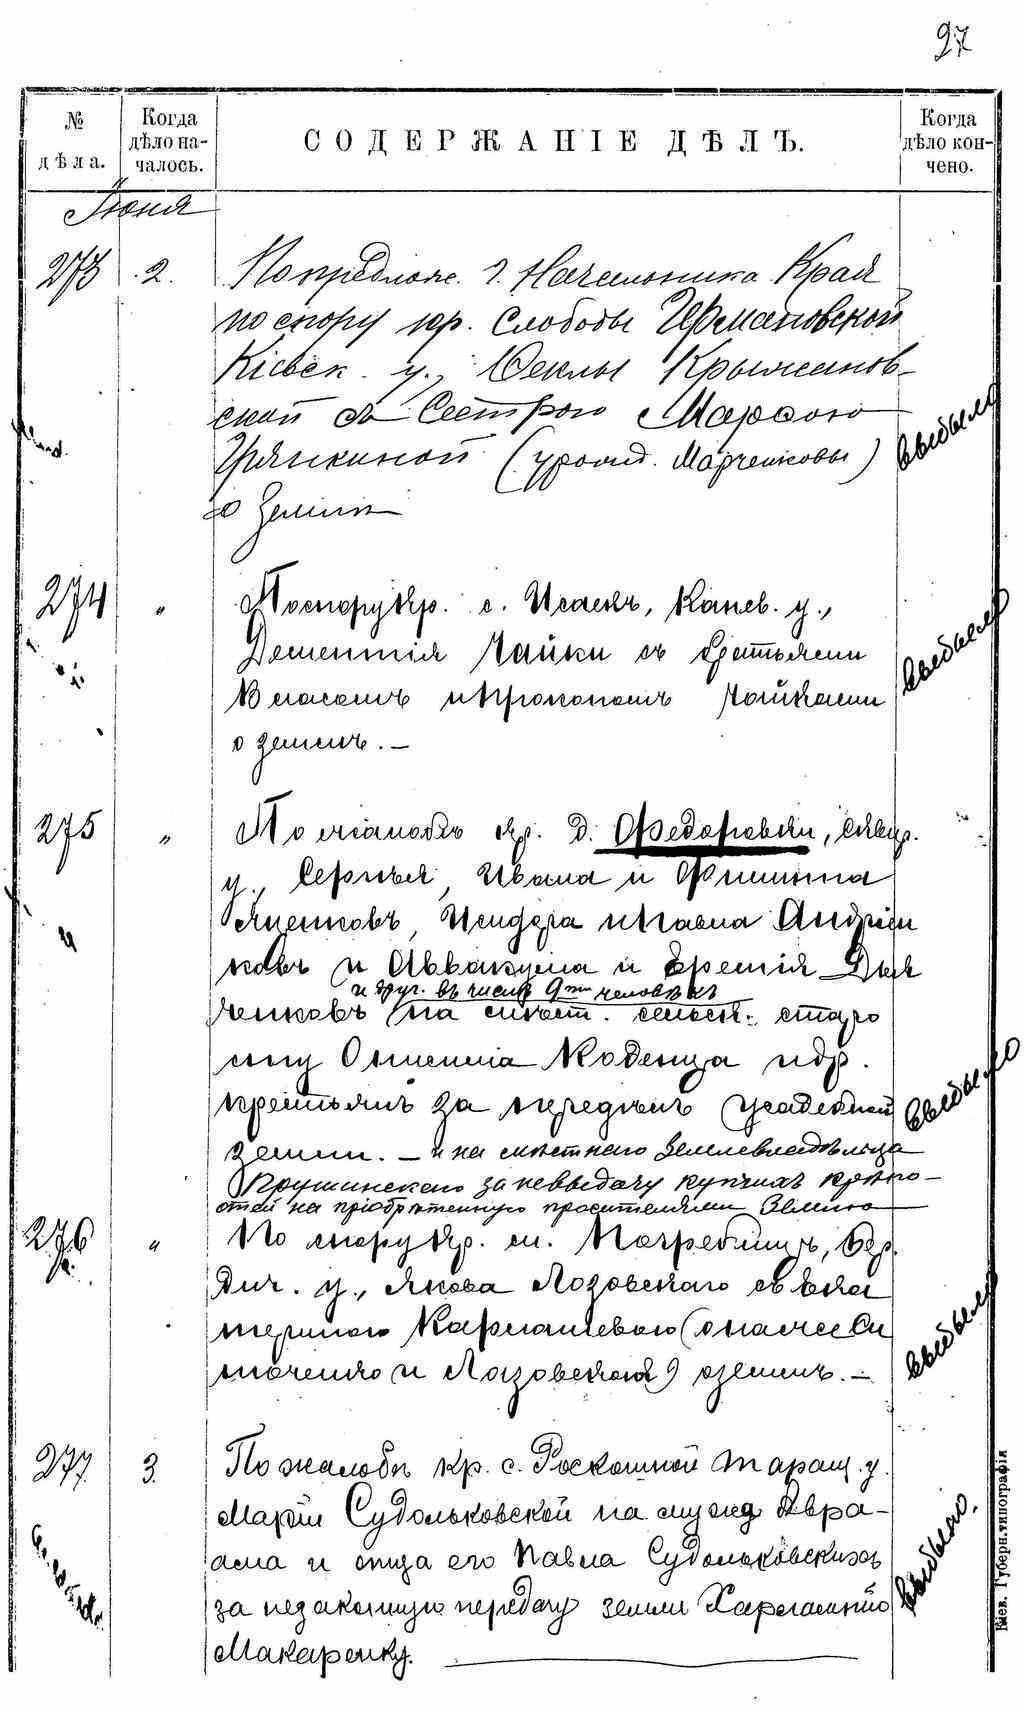 27
№ дѣла.
Когда дѣло началось.
СОДЕРЖАНІЕ ДѢЛЪ.
Когда дѣло кончено.
Іюня
273 2. По предлож. Г. Начальника Края
по спору кр. Слободы Германовской
Кіевск. у., Феклы Крыжанов-
ской съ Сестрою Марфою
(урожд. Марченковы)
о Землѣ
выбыло
274 " По спору кр. с. Исаекъ, Канев. у.,
Дементія Чайки съ братьями
Власомъ и Прокопомъ Чайками
о землѣ. —
выбыло
275 " По жалобѣ кр. д. Федоровки, Сквир.
у., Сергѣя, Ивана и Филиппа
Яценковъ, Исидора и Павла Андрій
ковъ и Аввакума и Еремія Дья
и друг. въ числѣ 9ти человѣкъ
ченковъ на мѣст. сельск. старо
сту Онисима Коденца и др.
крестьянъ за передѣлъ усадебной
земли. — и на мѣстнаго Землевладѣльца
Крушинскаго за невыдачу купчихъ крѣпо-
стей на пріобрѣтенную просителями Землю
выбыло
276 " По спору кр. м. Погребищъ, Бер
дич. у., Якова Лозовскаго съ Ека
териною Кармашевою (она же Си
и Лозовская) о землѣ. —
выбыло
277 3. По жалобѣ кр. с. Роскошной Таращ. у.
Маріи Судольковской на мужа Авра-
ама и отца его Павла Судольковскихъ
за незаконную передачу земли Харлампію
Макаренку.
выбыло.
Кіев. Губерн. типографія